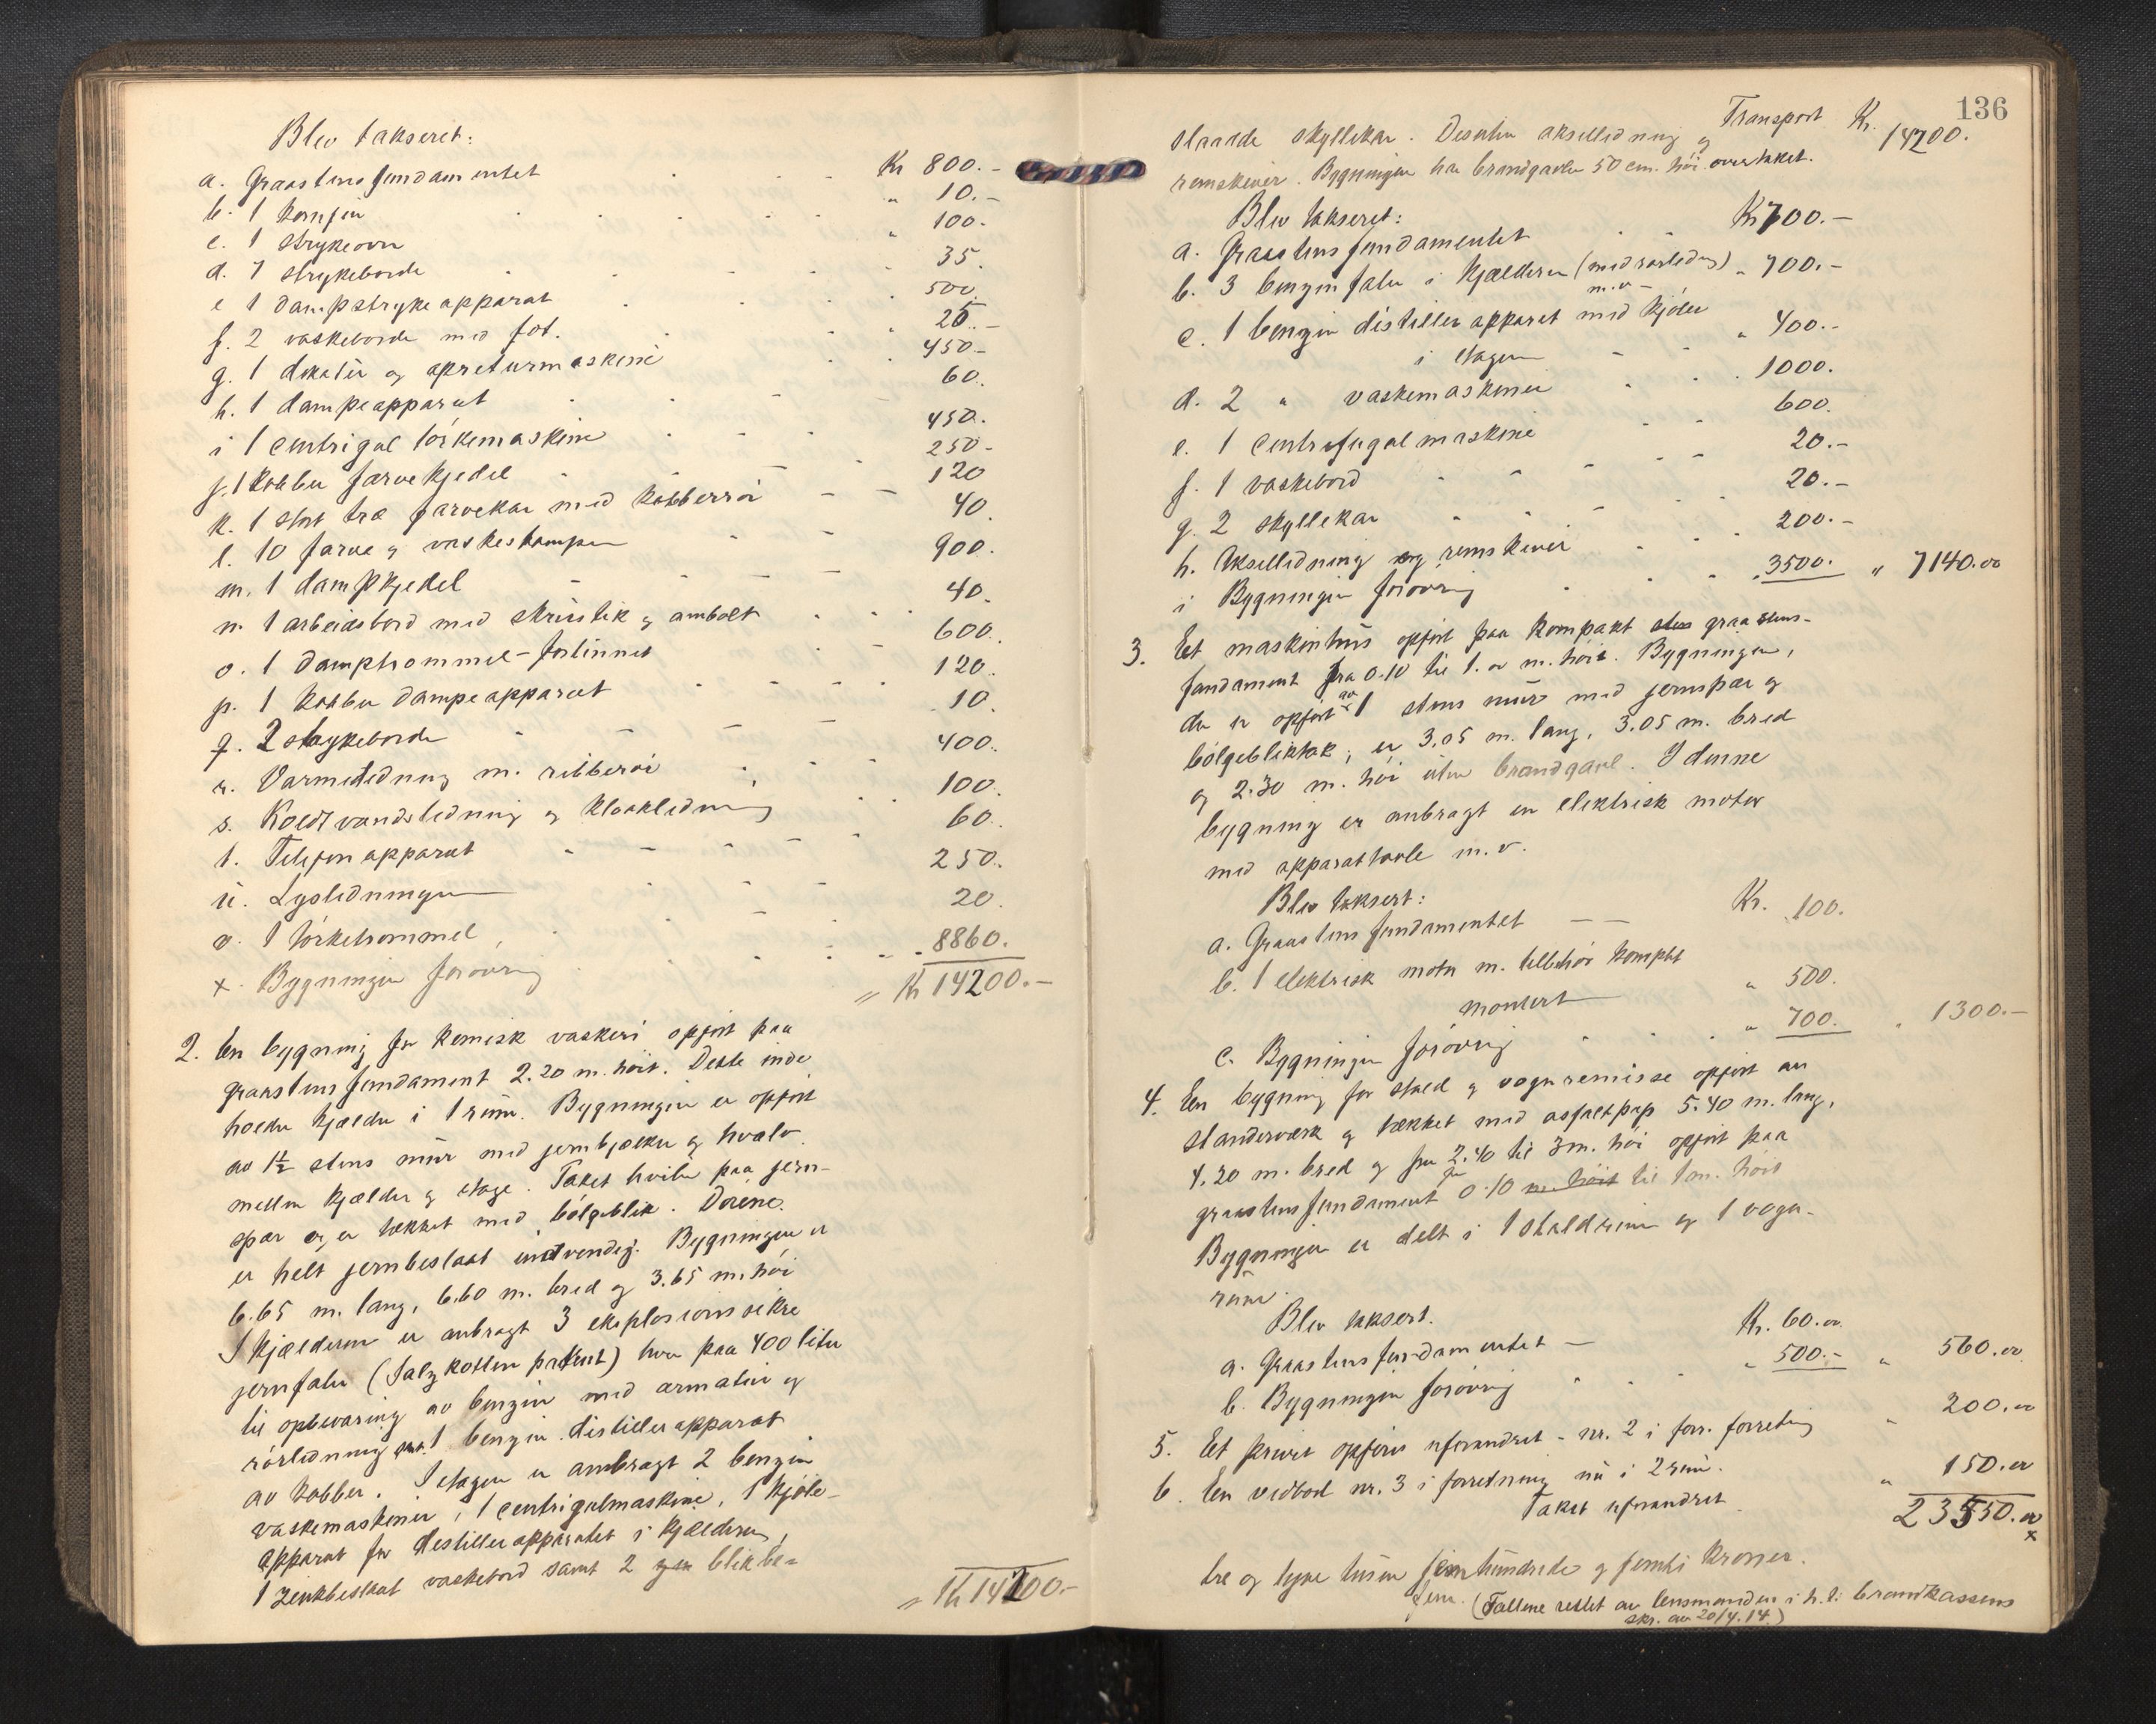 Blev takseret:
a. Graastensfundamentet Kr 800.-
b. 1 komfur " 10.-
c. 1 strykeovn " 100.-
d. 7 strykeborde " 35.
e 1 dampstrykeapparat " 500.
f. 2 vaskeborde med fot. " 25.-
g. 1 dekatür og apreturmaskine 450.-
h. 1 dampeapparat 60.
i 1 centrigal törkemaskine 450.
j. 1 kobber farvekjedel 250-
k. 1 stort træ farvekar med kobberrör 120
l. 10 farve og vaskestamper 40.
m. 1 dampkjedel 900.
n. 1 arbeidsbord med skrustik og ambolt 40.
o. 1 damptrommel-fortinnet 600.
p. 1 kobber dampeapparat 120.
q. 2 strykeborde 10.
r. Varmeledning m. ribberör 400.
s. Koldtvandsledning og kloakledning 100.
t. Telefonapparat 60.
ü. Lysledningen 250.
v. 1 törketrommel 20.
x. Bygningen forövrig 8860.
= Kr 14200.-
2. En bygning for kemisk vaskeri opfört paa
graastensfundament 2.20 m. höit. Dette inde
holder kjælder i 1 rüm. Bygningen er opfört
av 1½ stens mür med jernbjælker og hvælv
mellem kjælder og etage. Taket hviler paa jern-
spær og er tækket med bölgeblik. Dörene
er helt jernbeslaat indvendig. Bygningen er
6.65 m. lang, 6.60 m. bred og 3.65 m. höi
I kjælderen er anbragt 3 eksplosionssikre
jernfater (Salzkotten patent) hver paa 400 liter
til opbevaring av benzin med armatür og
rörledning samt 1 benzin distillerapparat
av kobber. I etagen er anbragt 2 benzin
vaskemaskiner, 1 centrigalmaskine, 1 kjöle-
apparat for destillerapparatet i kjælderen,
1 zinkbeslaat vaskebord samt 2 blikbe-
= Kr 14200.-
136
Transport Kr. 14200.
slaadde skyllekar. Desuten akselledning og
remskiver. Bygningen har brandgavler 50 cm. höi over taket.
Blev takseret:
a. Graastensfundamentet Kr 700.-
b. 3 benzinfater i kjælderen (med rörledning) " 700.-
m.v-
c. 1 benzin distillerapparat med kjöler
i etagen " 400.-
d. 2 " vaskemaskiner 1000.
e. 1 centrifugalmaskine 600.
f. 1 vaskebord 20.-
g. 2 skyllekar 20.-
h. Akselledning og remskiver 200.-
i Bygningen forövrig 3500. " 7140.00
3. Et maskinhüs opfört paa kompakt sten graastens-
fundament fra 0.10 til 1.00 m. höit. Bygningen,
der er opfört av 1 stens mür med jernspær og
bölgebliktak, er 3.05 m. lang, 3.05 m. bred
og 2.30 m. höi üten brandgavl. I denne
bygning er anbragt en elektrisk motor
med apparattavle m.v.
Blev taksert:
a. Graastensfundamentet Kr. 100.
b. 1 elektrisk motor m. tilbehör komplet
montert " 500.
c. Bygningen forövrig " 700. " 1300.-
4. En bygning for stald og vognremisse opfört av
standerværk og tækket med asfaltpap 5.40 m. lang,
4.20 m. bred og fra 2.40 til 3 m. höi opfört paa
graastensfundament fra 0.10 m. höit til 1 m. höit
Bygningen er delt i 1 staldrüm og 1 vogn-
rüm.
Blev taksert.
a. Graastensfundamentet Kr. 60.00
b. Bygningen forövrig " 500.- " 560.00
5. Et privet opföres uforandret - nr. 2 i forr. forretning " 200.00
6. En vedbod nr. 3 i forretning nü i 2 rüm.
Taket uforandret. " 150.00
23550.00
x
tre og tyve tusen fem hündrede og femti kroner.
fem. (Tallene rettet av lensmanden i h.t. brandkassens
skr. av 20/4.14.)